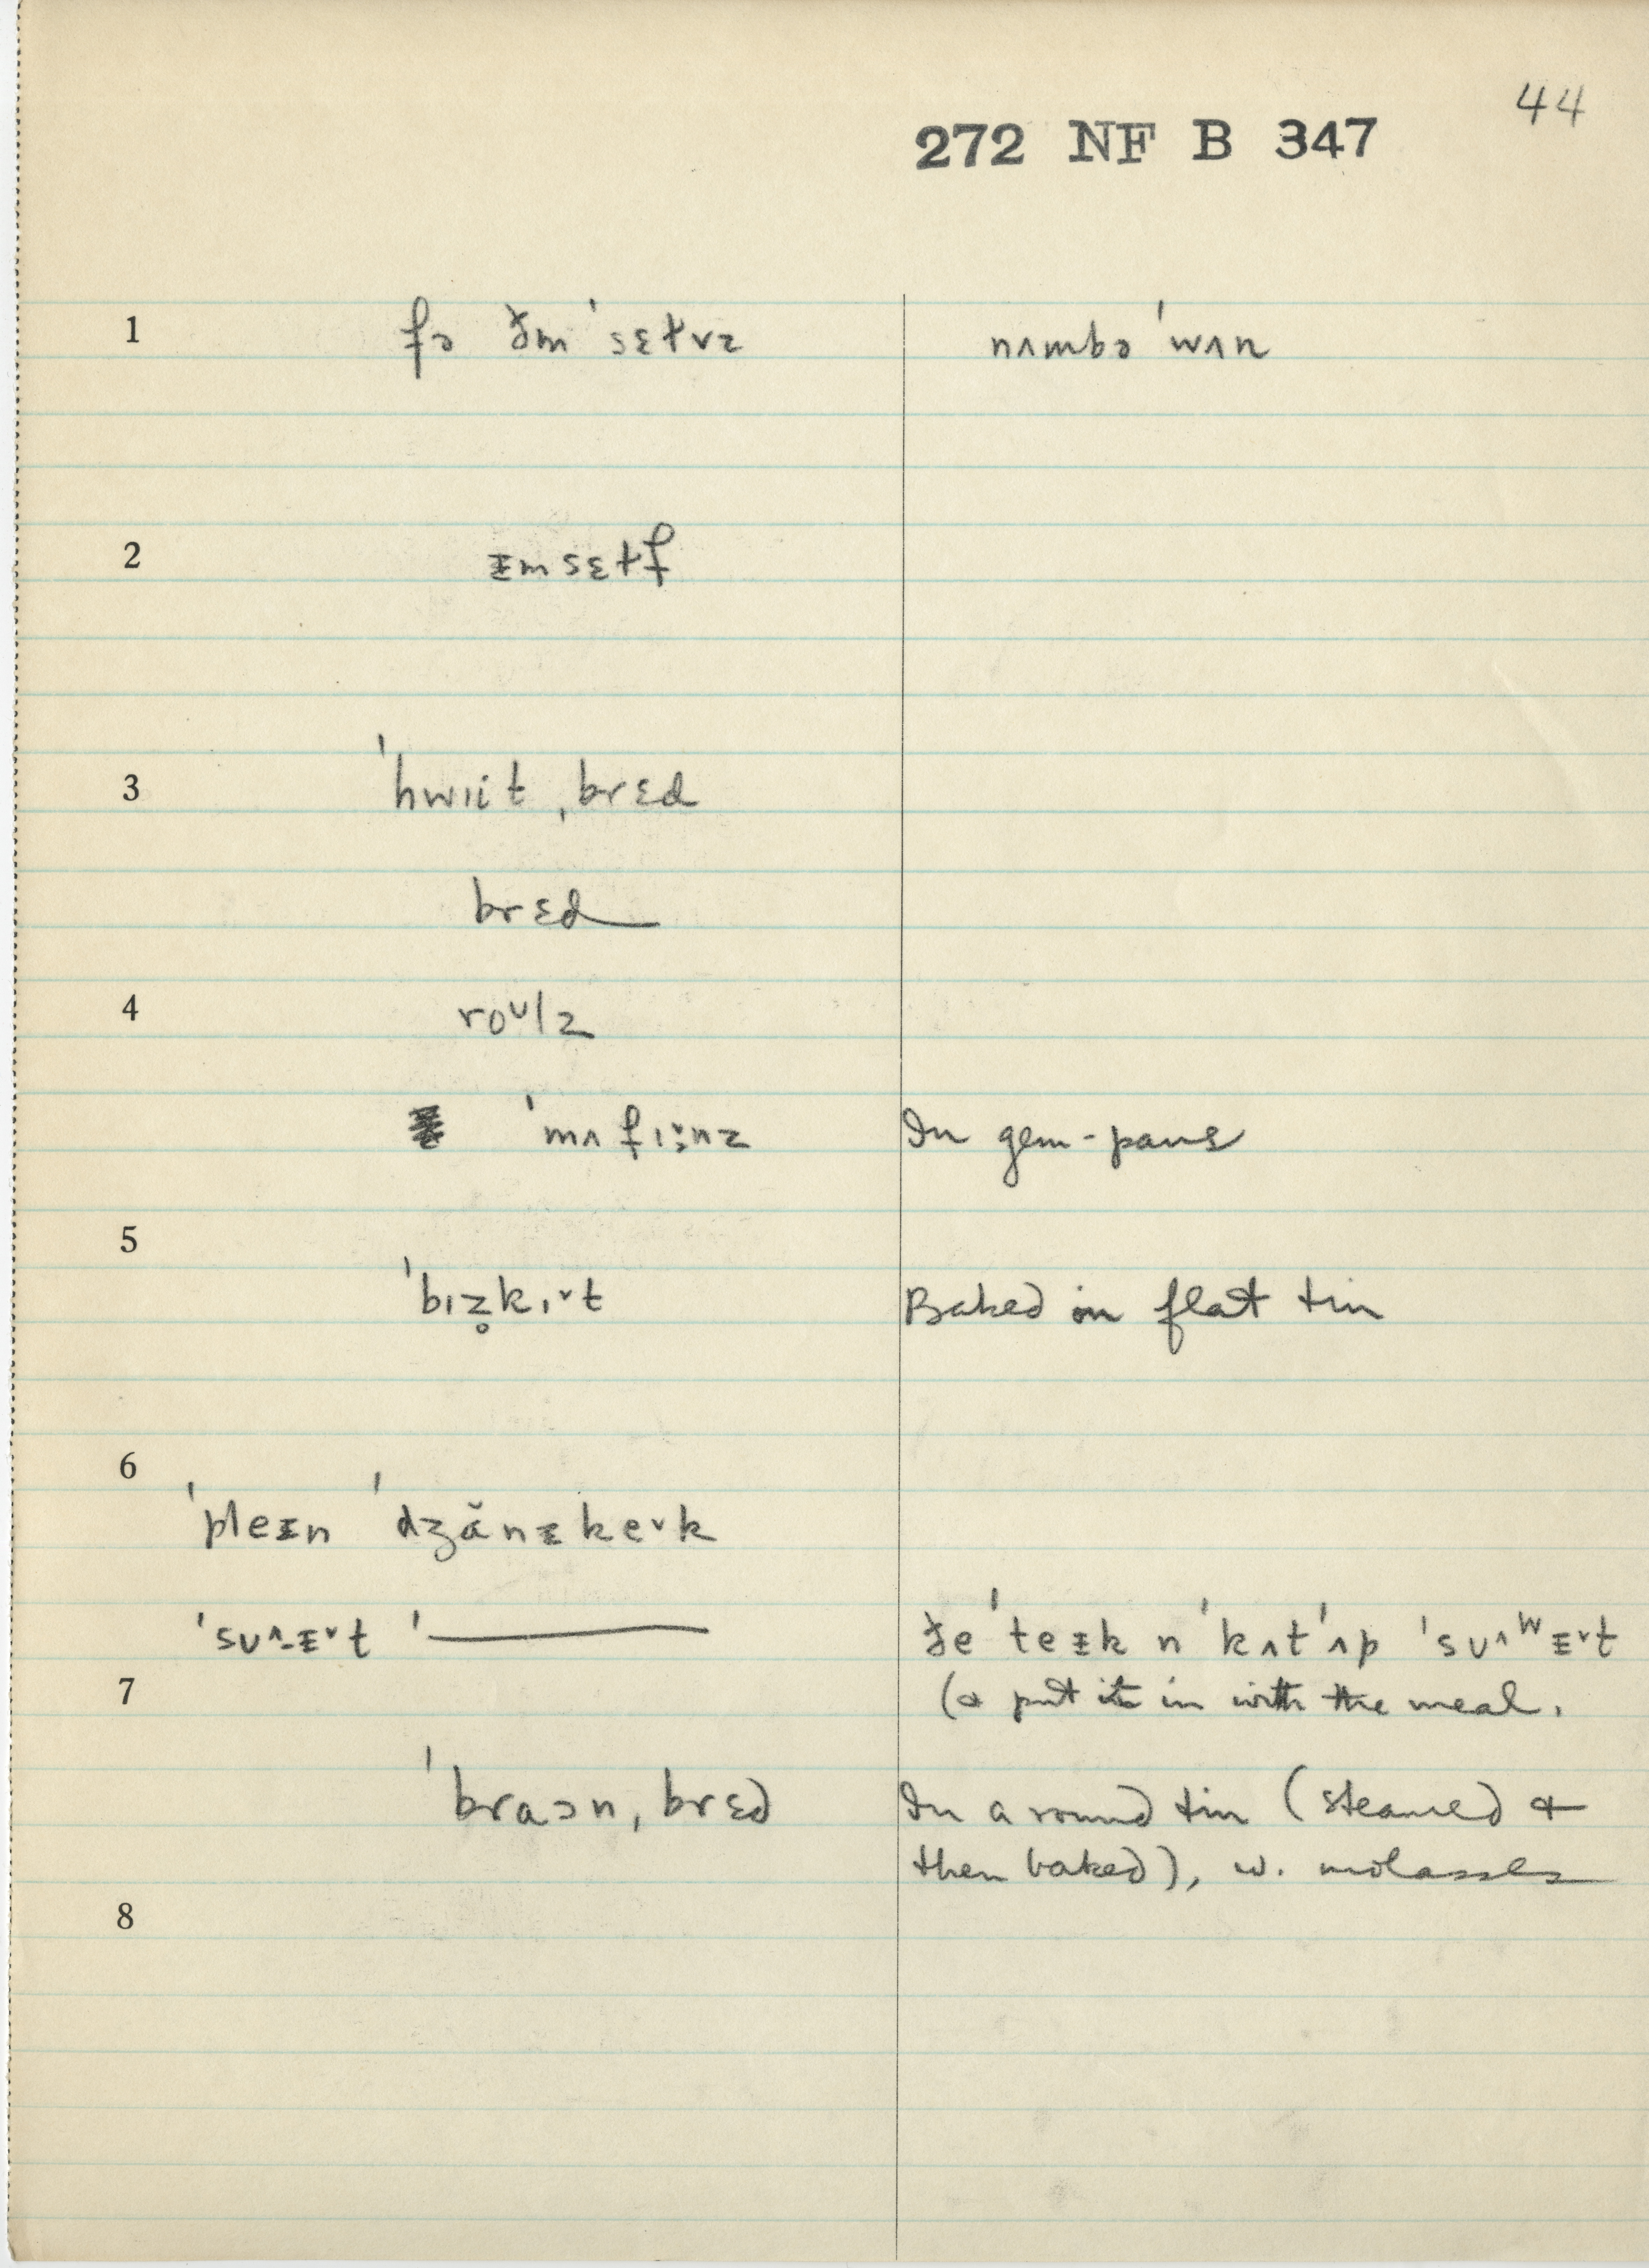 44
272 NF B 347
1 fə ðm ˈsɛɫvz nʌmbə ˈwʌn
2 ᵻmsɛɫf
3 ˈhwɪit ˌbrɛd
brɛd
4 roᴜlz
ˈmʌfɪ:nz In gem-pans
5
ˈbɪz̥kɪ˅t Baked in flat tin
6
ˈpleᵻn ˈdʒănᵻke˅k
ˈsᴜ^-ᵻ˅t ˈ——— ðe ˈteᵻk n ˈkʌtˈʌp ˈsᴜ^ʷᵻ˅t
7 (& put it in with the meal.
ˈbraɔn ˌbrɛd In a round tin (steamed &
then baked), w. molasses
8